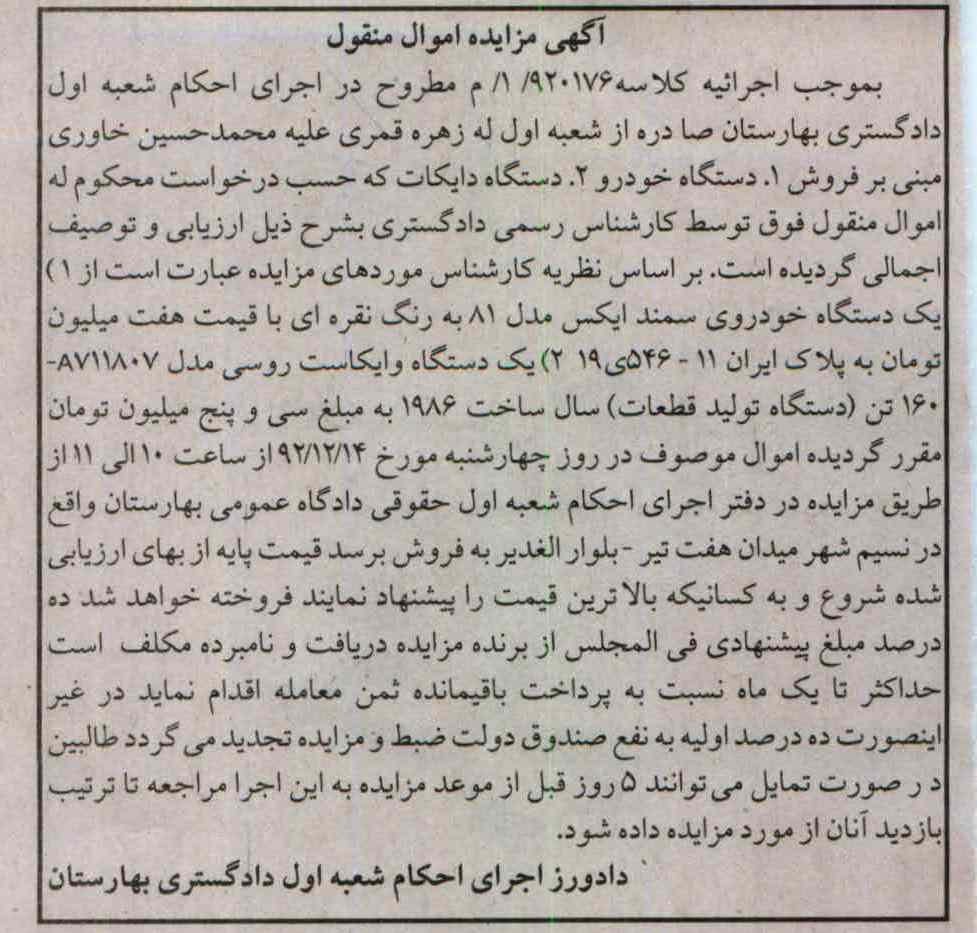 آگهی مزایده اموال منقول
بموجب اجرائیه کلاسه۹۲۰۱۷۶/ ۱/ م مطروح در اجرای احکام شعبه اول
دادگستری بهارستان صا دره از شعبه اول له زهره قمری علیه محمدحسین خاوری
مبنی بر فروش ۱. دستگاه خودرو ۲. دستگاه دایکات که حسب درخواست محکوم له
اموال منقول فوق توسط کارشناس رسمی دادگستری بشرح ذیل ارزیابی و توصیف
اجمالی گردیده است. بر اساس نظریه کارشناس موردهای مزایده عبارت است از ۱)
یک دستگاه خودروی سمند ایکس مدل ۸۱ به رنگ نقره ای با قیمت هفت میلیون
تومان به پلاک ایران ۱۱ - ۵۴۶ی۱۹ ۲) یک دستگاه وایکاست روسی مدل A۷۱۱۸۰۷-
۱۶۰ تن (دستگاه تولید قطعات) سال ساخت ۱۹۸۶ به مبلغ سی و پنج میلیون تومان
مقرر گردیده اموال موصوف در روز چهارشنبه مورخ ۹۲/۱۲/۱۴ از ساعت ۱۰ الی ۱۱ از
طریق مزایده در دفتر اجرای احکام شعبه اول حقوقی دادگاه عمومی بهارستان واقع
در نسیم شهر میدان هفت تیر - بلوار الغدیر به فروش برسد قیمت پایه از بهای ارزیابی
شده شروع و به کسانیکه بالا ترین قیمت را پیشنهاد نمایند فروخته خواهد شد ده
درصد مبلغ پیشنهادی فی المجلس از برنده مزایده دریافت و نامبرده مکلف است
حداکثر تا یک ماه نسبت به پرداخت باقیمانده ثمن معامله اقدام نماید در غیر
اینصورت ده درصد اولیه به نفع صندوق دولت ضبط و مزایده تجدید می گردد طالبین
د ر صورت تمایل می توانند ۵ روز قبل از موعد مزایده به این اجرا مراجعه تا ترتیب
بازدید آنان از مورد مزایده داده شود.
دادورز اجرای احکام شعبه اول دادگستری بهارستان